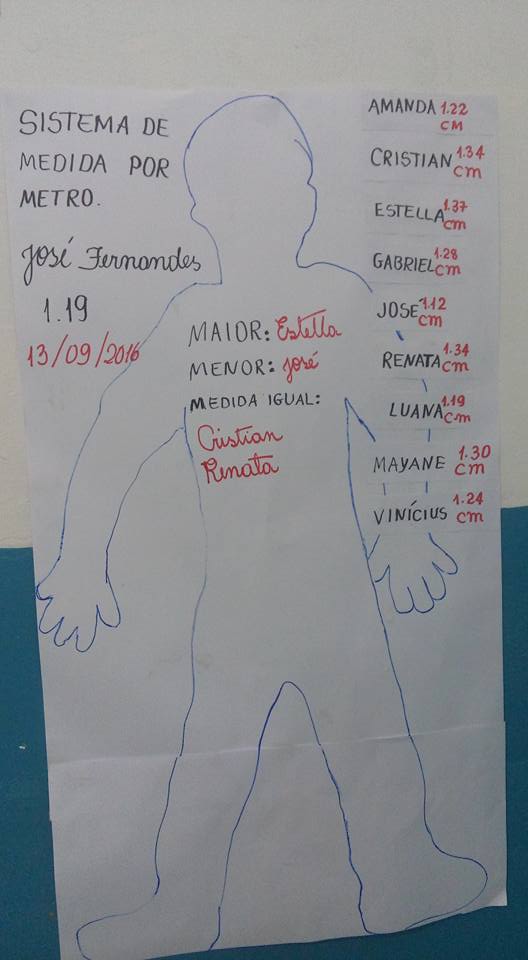 SISTEMA DE
MEDIDA POR
METRO.
José Fernandes
1.19
13/09/2016
MAIOR: Estella
MENOR: José
MEDIDA IGUAL:
Cristian
Renata
AMANDA 1.22
CM
CRISTIAN 1.34
cm
ESTELLA 1.37
cm
GABRIEL 1.28
cm
JOSE 1.12
cm
RENATA 1.34
cm
LUANA 1.19
cm
MAYANE 1.30
cm
VINÍCIUS 1.24
cm